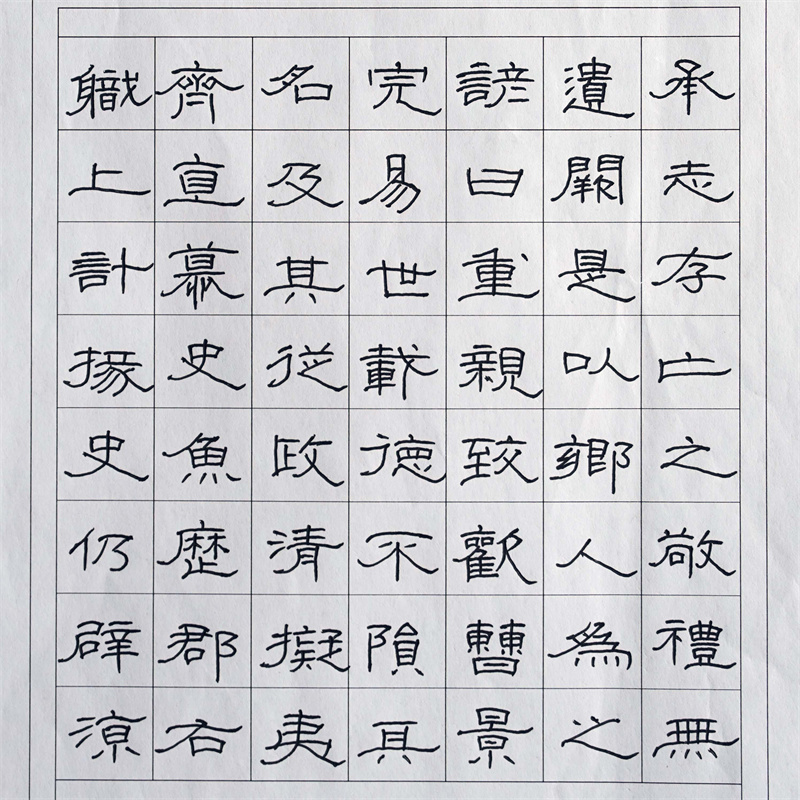 承志存亡之敬禮無
遺闕是以鄉人爲之
諺曰重親致歡曹景
完易世載德不隕其
名及其從政清擬夷
齊直慕史魚歷郡右
職上計掾史仍辟涼